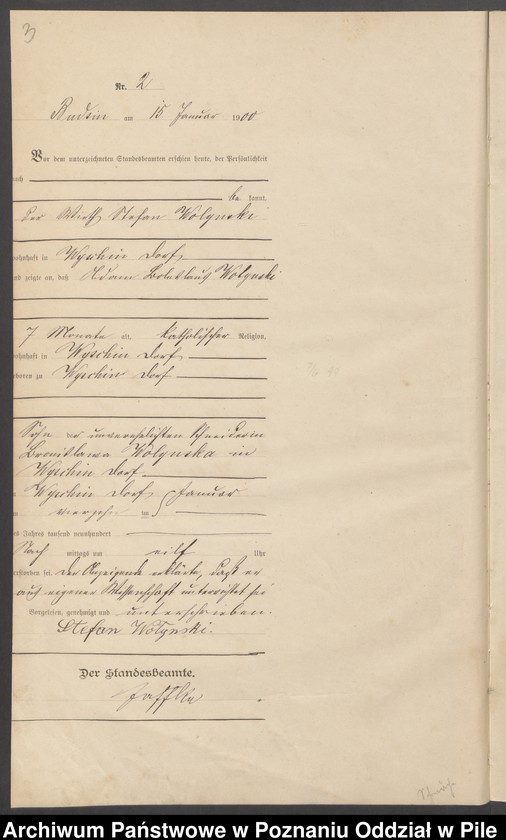 3
Nr. 2
Budsin am 15 Januar 1900
Vor dem unterzeichneten Standesbeamten erschien heute, der Persönlichkeit
nach
be kannt,
der Wirth Stefan Wolynski
wohnhaft in Wyschin Dorf
und zeigte an, daß Adam Boleslaus Wołynski
7 Monate alt, katholischer Religion,
wohnhaft in Wyschin Dorf
geboren zu Wyschin Dorf
Sohn der unverehelichten Schneiderin
Bronisława Wolynska in
Wyschin Dorf
Wyschin Dorf Januar
vierzehn
des Jahres tausend neunhundert
Nach mittags um eilf Uhr
verstorben sei. Der Anzeigende erklärte, daß er
aus eigener Wissenschaft unterrichtet sei
Vorgelesen, genehmigt und unterschrieben.
Stefan Wołynski.
Der Standesbeamte.
Archiwum Państwowe w Poznaniu Oddział w Pile